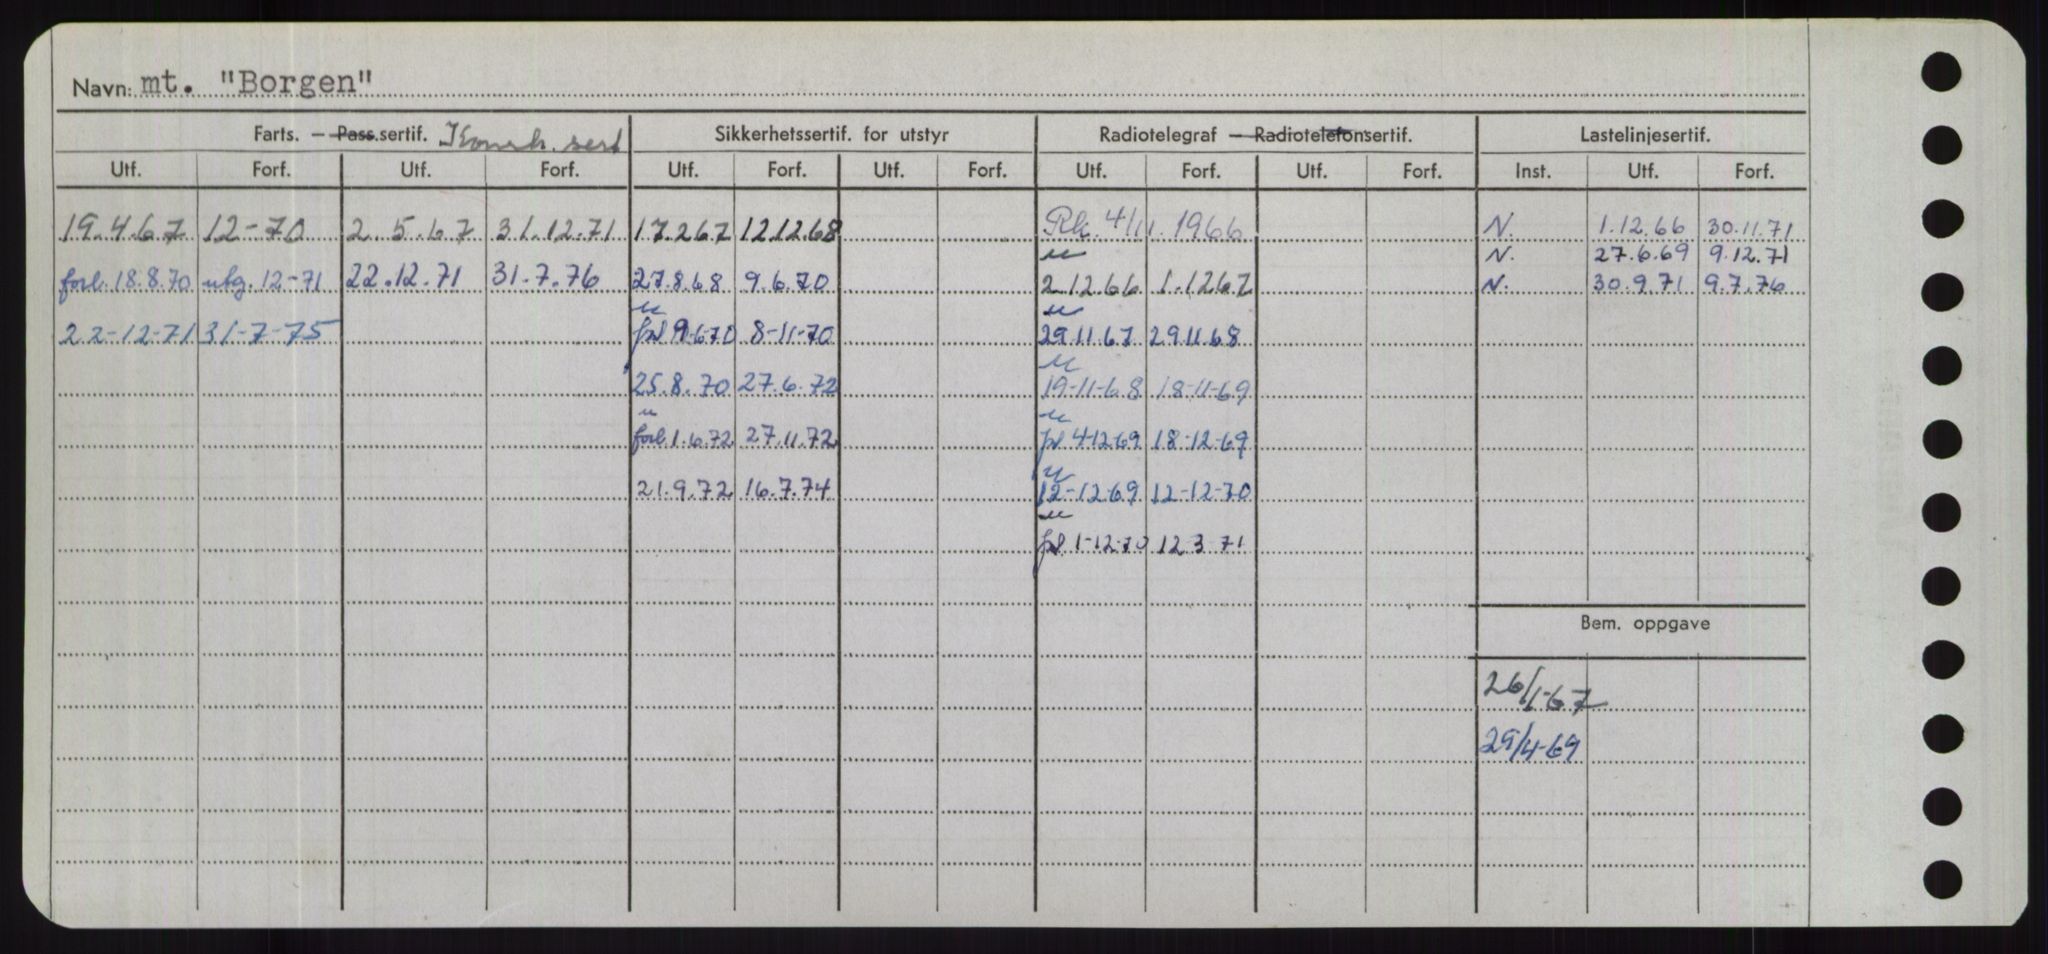 Navn: mt. "Borgen"
Farts. – Pass.sertif. Konstr. sert Sikkerhetssertif. for utstyr Radiotelegraf – Radiotelefonsertif. Lastelinjesertif.
Utf. Forf. Utf. Forf. Utf. Forf. Utf. Forf. Utf. Forf. Utf. Forf. Inst. Utf. Forf.
19.4.67 12-70 2.5.67 31.12.71 17.2.67 12.12.68 Rk. 4/11 1966 N. 1.12.66 30.11.71
u N. 27.6.69 9.12.71
forl. 18.8.70 utg. 12-71 22.12.71 31.7.76 27.8.68 9.6.70 2.12.66 1.12.67 N. 30.9.71 9.7.76
u u
22-12-71 31-7-75 fol 9-6-70 8-11-70 29.11.67 29.11.68
u
25.8.70 27.6.72 19-11-68 18-11-69
u u
forl. 1.6.72 27.11.72 fol 4-12-69 18-12-69
u
21.9.72 16.7.74 12-12-69 12-12-70
u
fol 1-12-70 12 3 71
Bem. oppgave
26/1-67
29/4-69